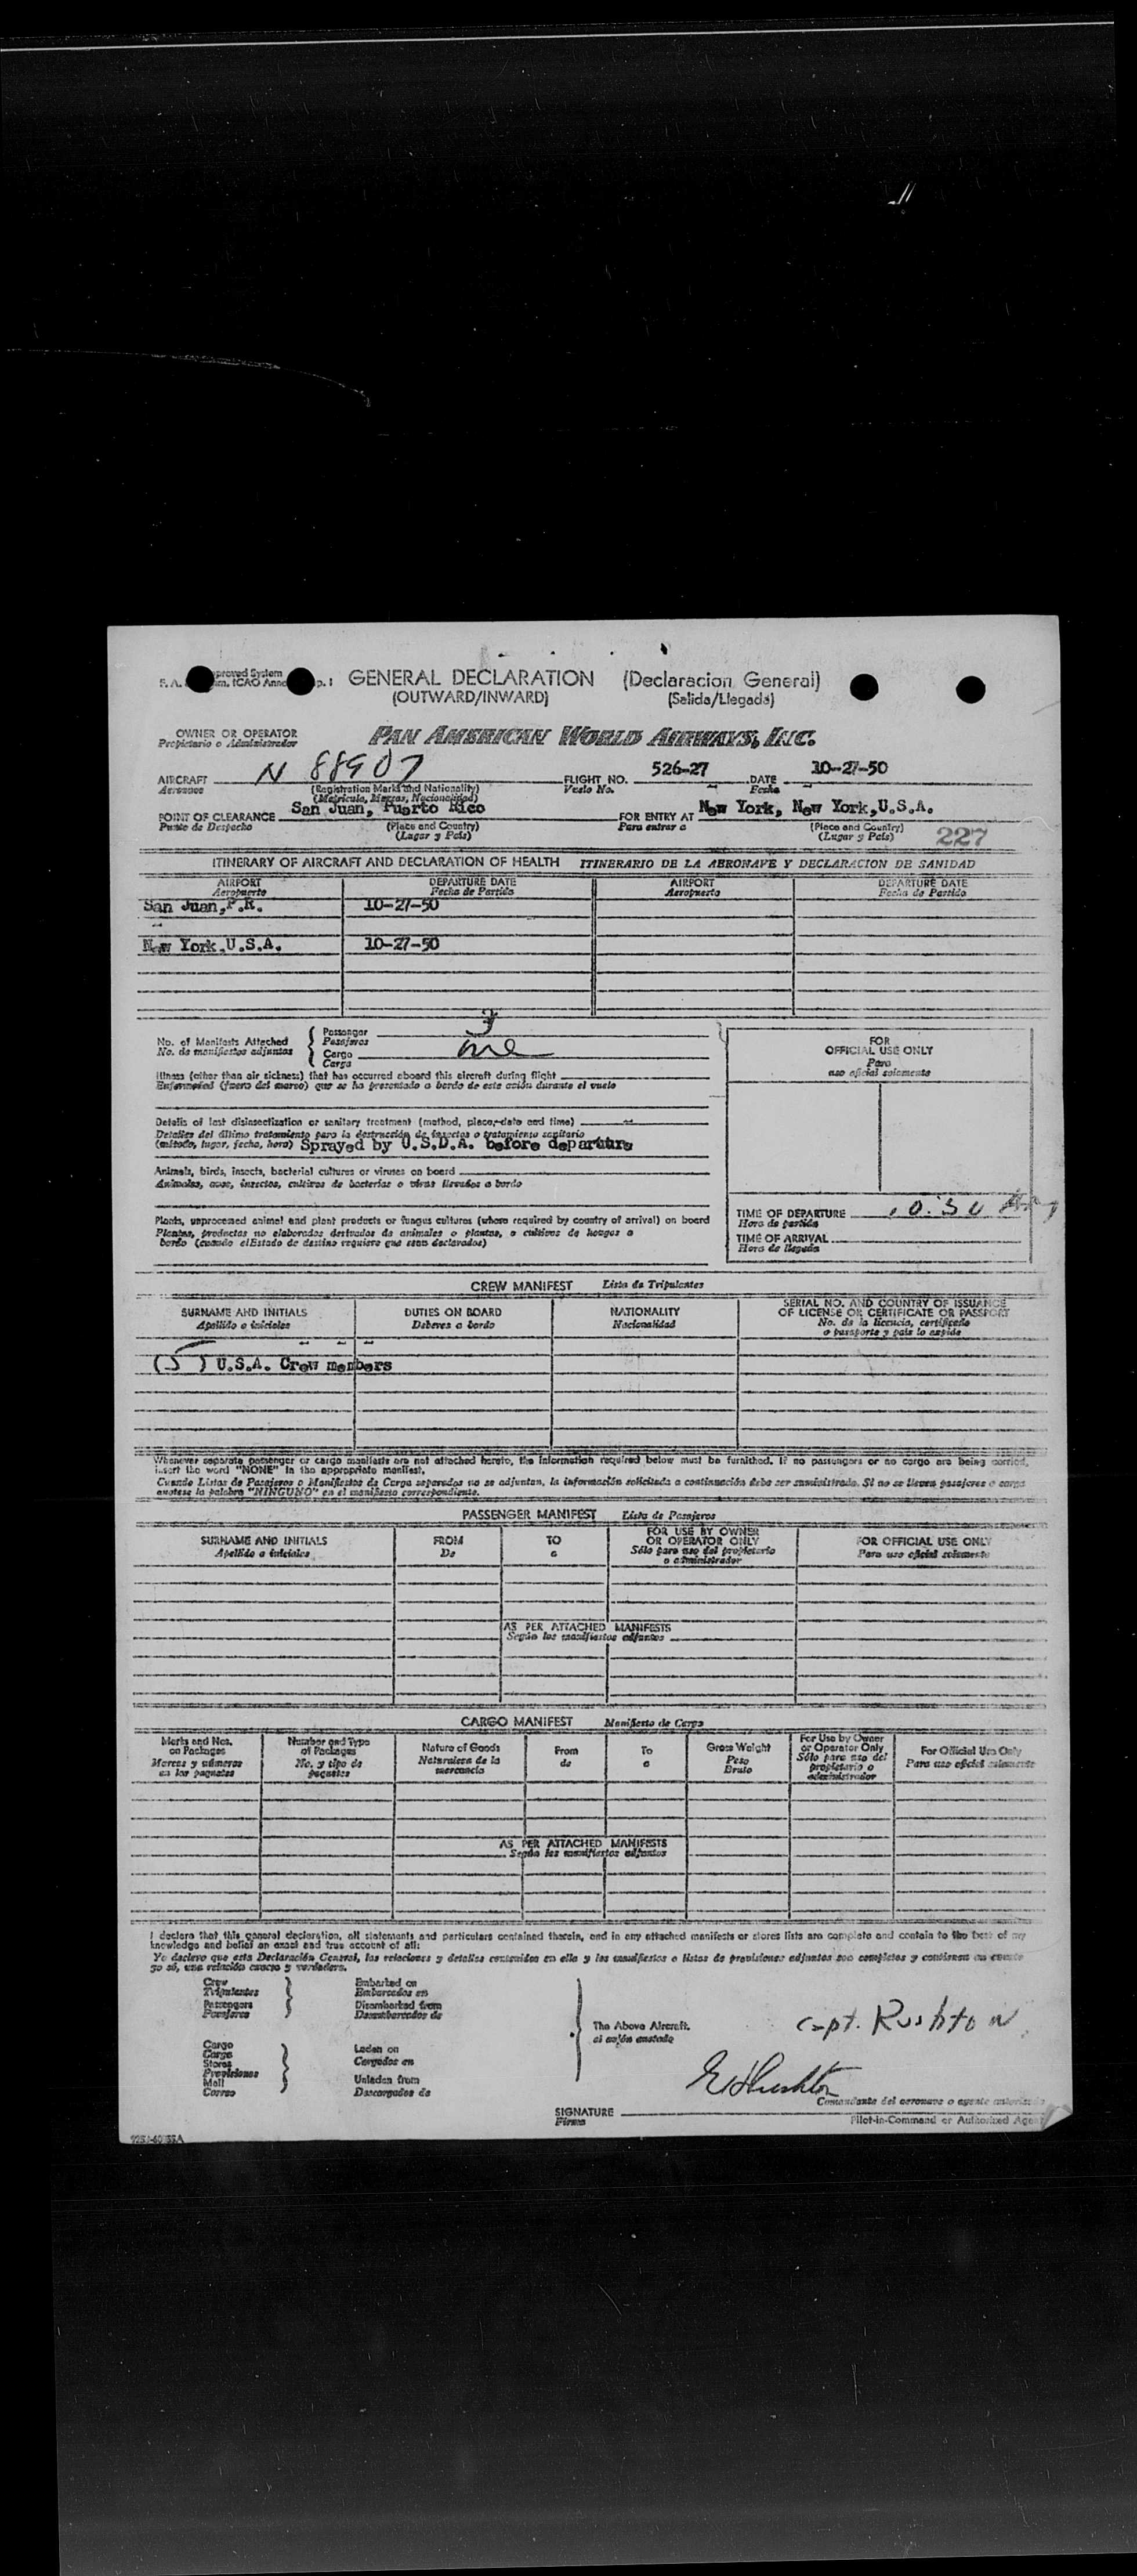 GENERAL DECLARATION (Declaracion General)
(OUTWARD/INWARD) (Salida/Llegada)
OWNER OR OPERATOR PAN AMERICAN WORLD AIRWAYS, INC.
Propietario o Administrador
AIRCRAFT N 88907 FLIGHT NO. 526-27 DATE 10-27-50
Aeronave (Registration Marks and Nationality) Vuelo No. Fecha
(Matricula, Marcas, Nacionalidad)
POINT OF CLEARANCE San Juan, Puerto Rico FOR ENTRY AT New York, New York, U.S.A.
Punto de Despacho (Place and Country) Para entrar a (Place and Country)
(Lugar y País) (Lugar y País) 227
ITINERARY OF AIRCRAFT AND DECLARATION OF HEALTH ITINERARIO DE LA AERONAVE Y DECLARACION DE SANIDAD
AIRPORT DEPARTURE DATE AIRPORT DEPARTURE DATE
Aeropuerto Fecha de Partida Aeropuerto Fecha de Partida
San Juan, P.R. 10-27-50
New York, U.S.A. 10-27-50
No. of Manifests Attached { Passenger 3
No. de manifiestos adjuntos Pasajeros
Cargo one
Carga
FOR
OFFICIAL USE ONLY
Para
uso oficial solamente
Illness (other than air sickness) that has occurred aboard this aircraft during flight
Enfermedad (fuera del mareo) que se ha presentado a bordo de este avión durante el vuelo
Details of last disinsectization or sanitary treatment (method, place, date and time)
Detalles del último tratamiento para la destrucción de insectos o tratamiento sanitario
(método, lugar, fecha, hora) Sprayed by U.S.D.A. before departure
Animals, birds, insects, bacterial cultures or viruses on board
Animales, aves, insectos, cultivos de bacterias o virus llevados a bordo
Plants, unprocessed animal and plant products or fungus cultures (where required by country of arrival) on board
Plantas, productos no elaborados derivados de animales o plantas, o cultivos de hongos a
bordo (cuando el Estado de destino requiere que sean declarados)
TIME OF DEPARTURE
Hora de partida
TIME OF ARRIVAL
Hora de llegada
CREW MANIFEST Lista de Tripulantes
SURNAME AND INITIALS DUTIES ON BOARD NATIONALITY SERIAL NO. AND COUNTRY OF ISSUANCE
OF LICENSE OR CERTIFICATE OR PASSPORT
Apellido e iniciales Deberes a bordo Nacionalidad No. de la licencia, certificado
o pasaporte y país lo expide
(5) U.S.A. Crew members
Whenever separate passenger or cargo manifests are not attached hereto, the information required below must be furnished. If no passengers or no cargo are being carried,
insert the word "NONE" in the appropriate manifest.
Cuando Listas de Pasajeros o Manifiestos de Carga separados no se adjuntan, la información solicitada a continuación debe ser suministrada. Si no se llevan pasajeros o carga
anotese la palabra "NINGUNO" en el manifiesto correspondiente.
PASSENGER MANIFEST Lista de Pasajeros
SURNAME AND INITIALS FROM TO FOR USE BY OWNER OR OPERATOR ONLY FOR OFFICIAL USE ONLY
Apellido e iniciales De a Sólo para uso del propietario o administrador Para uso oficial solamente
AS PER ATTACHED MANIFESTS
Según los manifiestos adjuntos
CARGO MANIFEST Manifiesto de Carga
Marks and Nos. on Packages Number and Type of Packages Nature of Goods From To Gross Weight For Use by Owner or Operator Only For Official Use Only
Marcas y números en los paquetes No. y tipo de paquetes Naturaleza de la mercancía de a Peso Bruto Sólo para uso del propietario o administrador Para uso oficial solamente
AS PER ATTACHED MANIFESTS
Según los manifiestos adjuntos
I declare that this general declaration, all statements and particulars contained therein, and in any attached manifests or stores lists are complete and contain to the best of my
knowledge and belief an exact and true account of all:
Yo declaro que esta Declaración General, las relaciones y detalles contenidos en ella y los manifiestos o listas de provisiones adjuntos son completos y contienen en cuanto
yo sé, una relación exacta y verdadera.
Crew Embarked on
Tripulantes Embarcados en
Passengers Disembarked from
Pasajeros Desembarcados de
The Above Aircraft.
el avión anotado
Capt. Rushton
Cargo Laden on
Carga Cargados en
Stores
Provisiones
Mail Unladen from
Correo Descargados de
Comandante del aeronave o agente autorizado
SIGNATURE
Firma
Pilot-in-Command or Authorized Agent